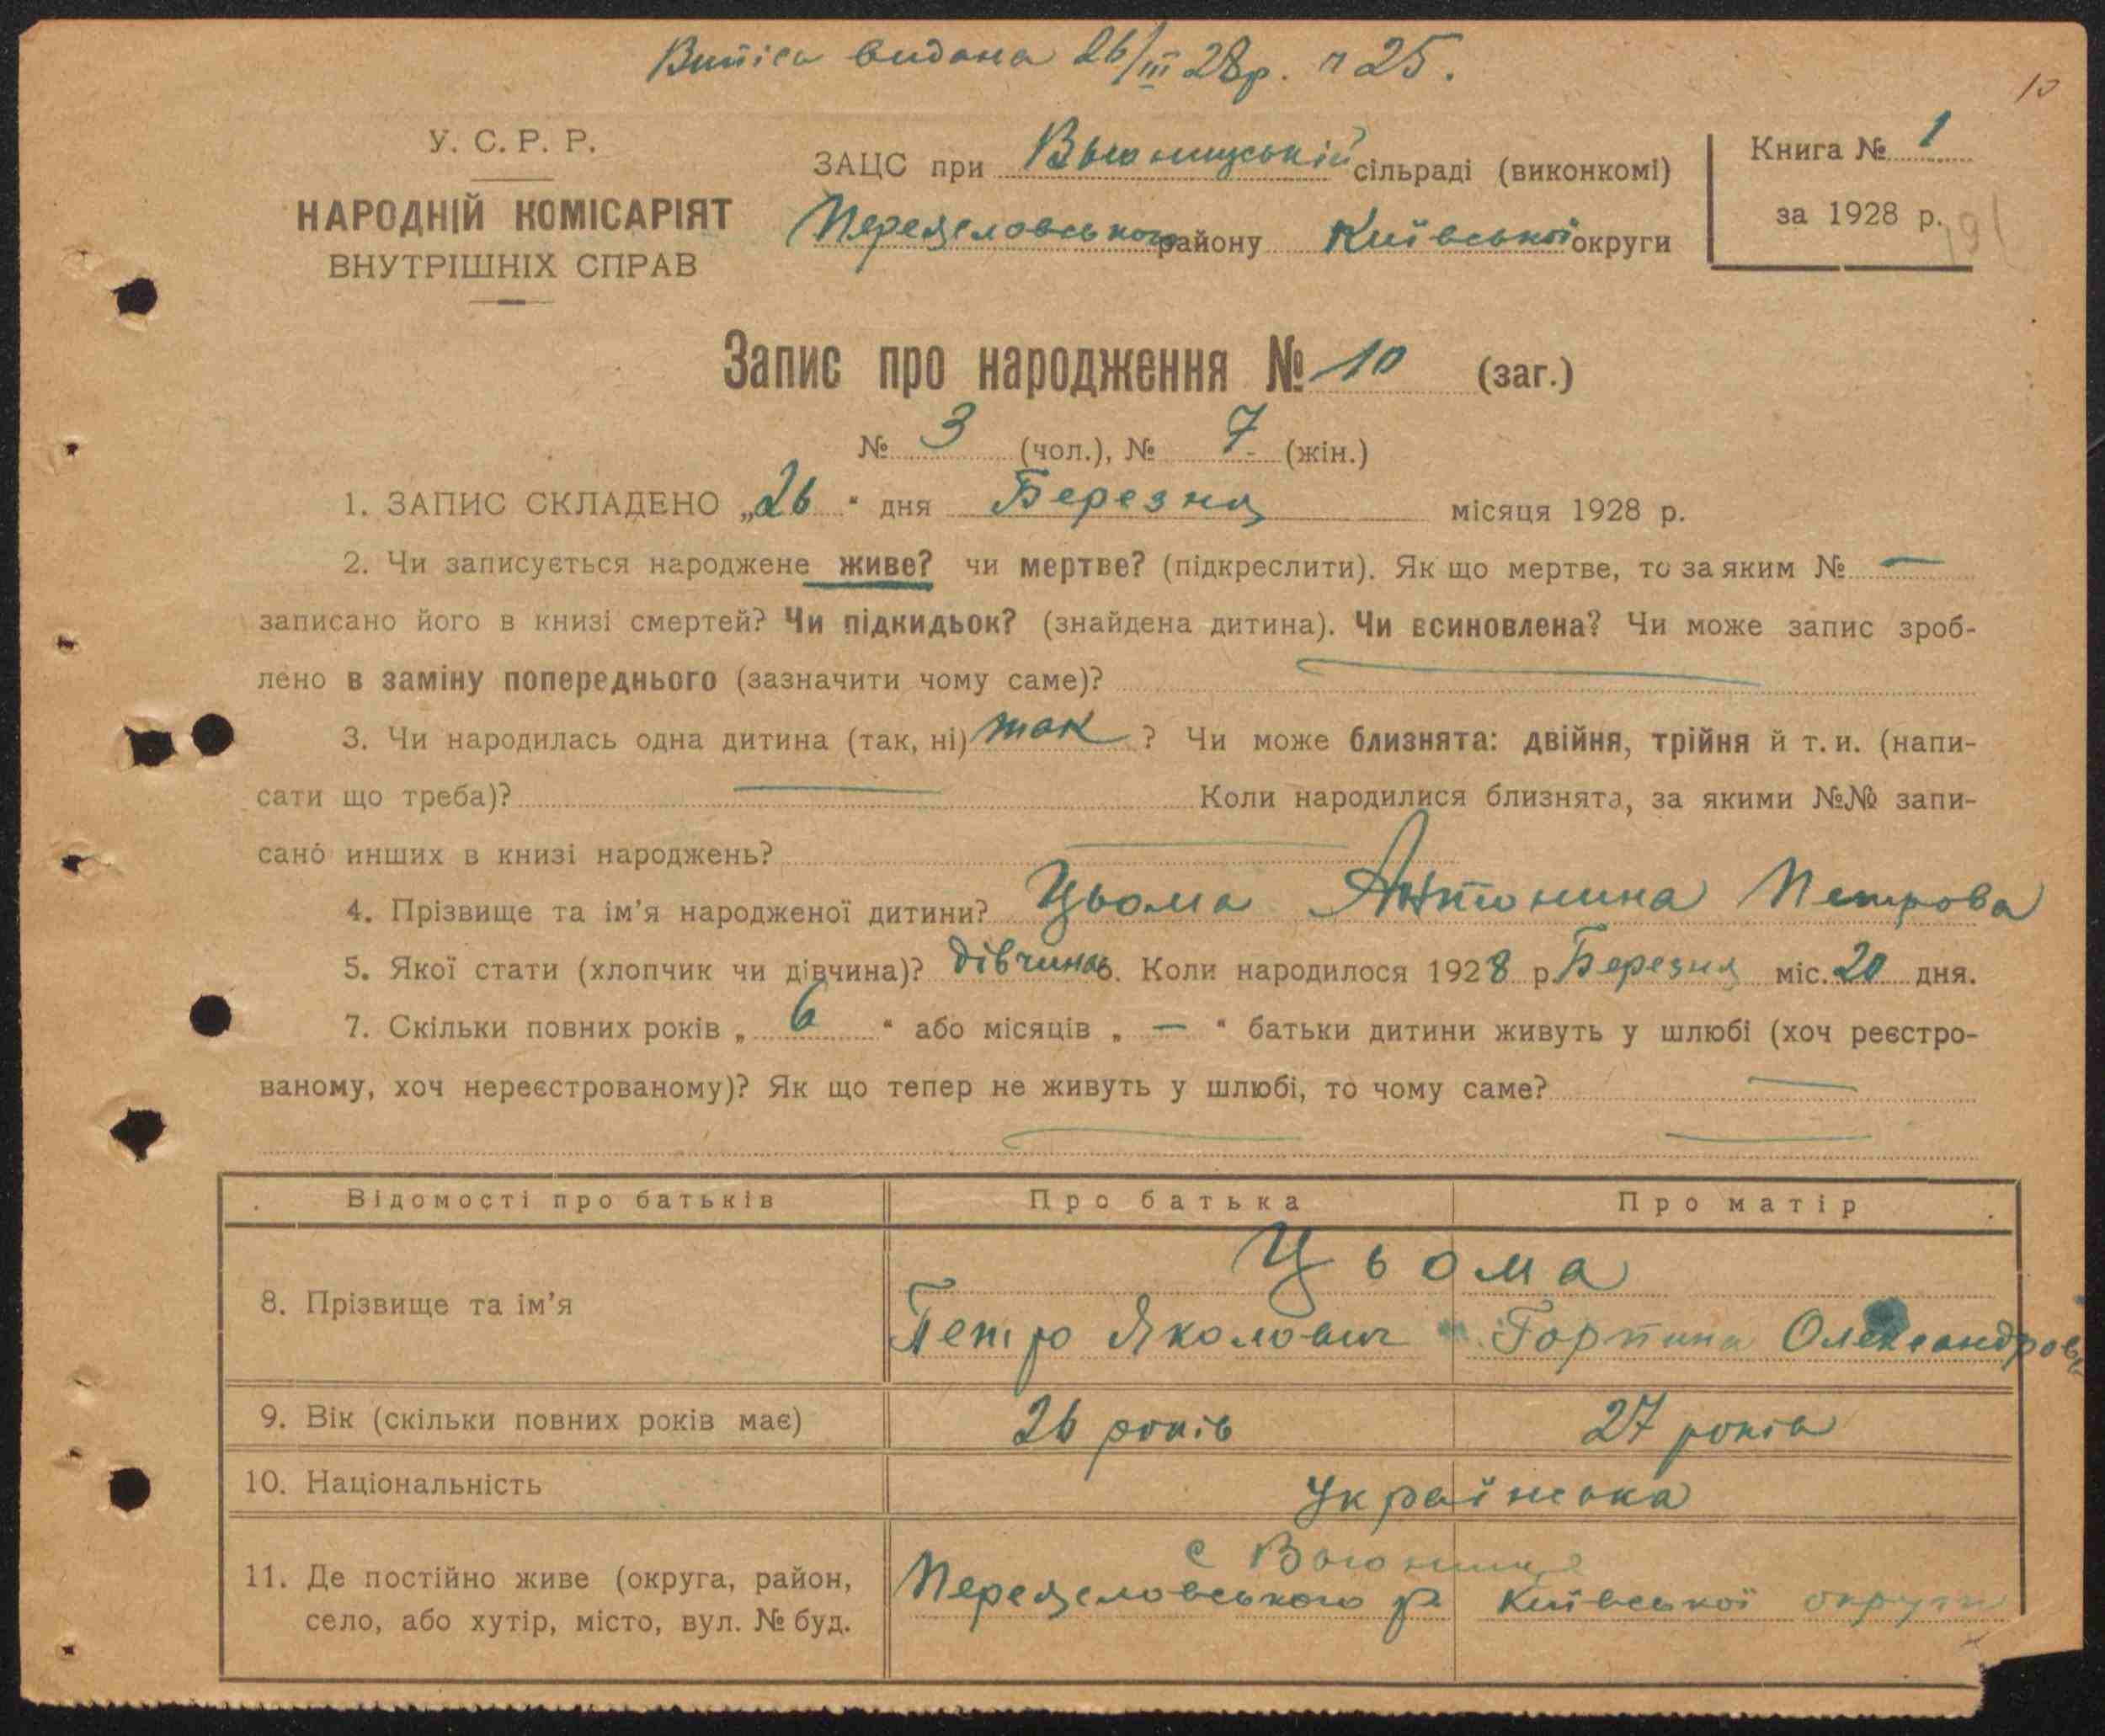 Випіса видана 26/III 28р. ч 25.
10
У. С. Р. Р.
НАРОДНІЙ КОМІСАРІЯТ
ВНУТРІШНІХ СПРАВ
ЗАЦС при сільраді (виконкомі)
району Київської округи
Книга № 1
за 1928 р.
191
Запис про народження № 10 (заг.)
№ 3 (чол.), № 7 (жін.)
1. ЗАПИС СКЛАДЕНО „26“ дня Березня місяця 1928 р.
2. Чи записується народжене живе? чи мертве? (підкреслити). Як що мертве, то за яким № —
записано його в книзі смертей? Чи підкидьок? (знайдена дитина). Чи всиновлена? Чи може запис зроб-
лено в заміну попереднього (зазначити чому саме)?
3. Чи народилась одна дитина (так, ні) так ? Чи може близнята: двійня, трійня й т. и. (напи-
сати що треба)? — Коли народилися близнята, за якими №№ запи-
сано инших в книзі народжень? —
4. Прізвище та ім’я народженої дитини? Цьома Антонина Петрова
5. Якої стати (хлопчик чи дівчина)? дівчина 6. Коли народилося 1928 р. Березня міс. 20 дня.
7. Скільки повних років „ 6 “ або місяців „ — “ батьки дитини живуть у шлюбі (хоч реєстро-
ваному, хоч нереєстрованому)? Як що тепер не живуть у шлюбі, то чому саме? —
Відомості про батьків Про батька Про матір
Цьома
8. Прізвище та ім’я
Петро Горпина Олександров
9. Вік (скільки повних років має) 26 років 27 років
10. Національність Українська
11. Де постійно живе (округа, район,
село, або хутір, місто, вул. № буд.
с
р. Київської округи